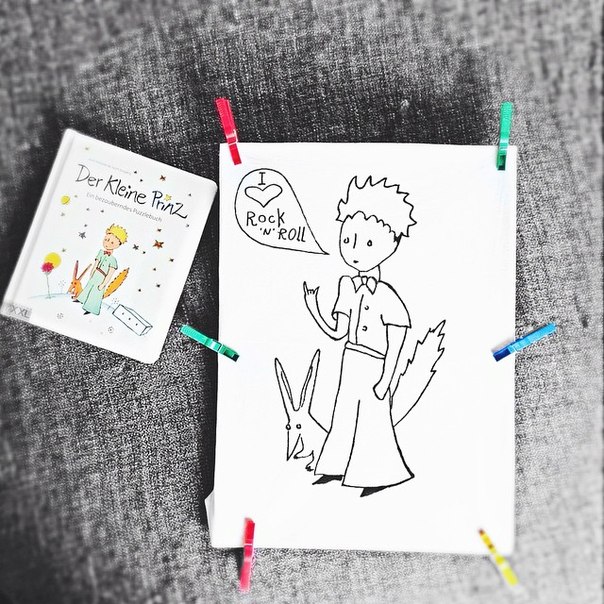 Der Kleine Prinz
Ein bezauberndes Puzzlebuch
XXL
I
Rock
'N'
Roll